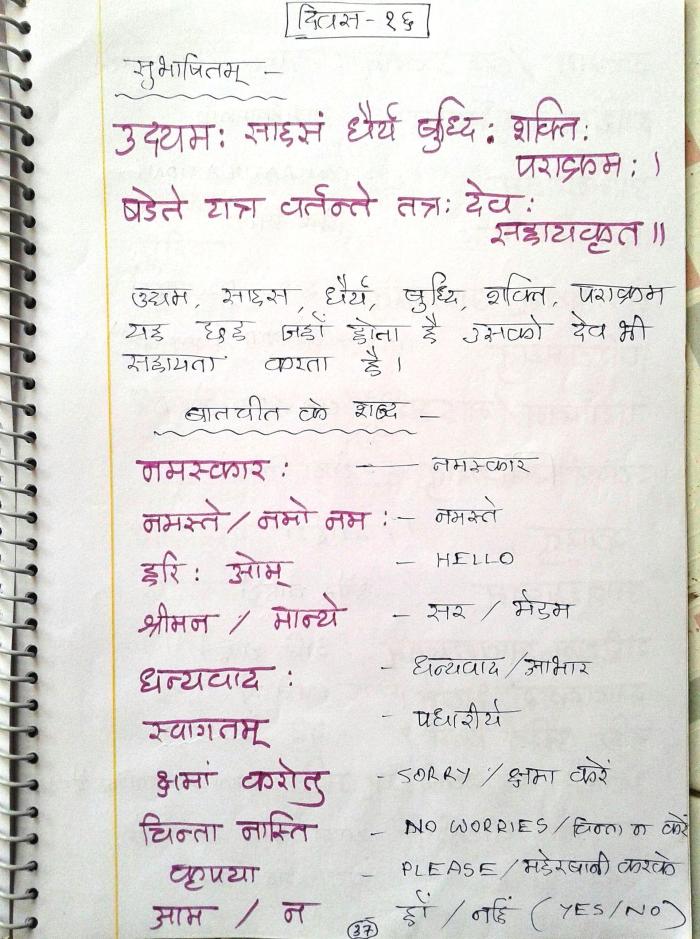 दिवस - १६
सुभाषितम् -
उदयमः साहसं धैर्य बुध्दिः शक्तिः
पराक्रमः।
षडेते यात्र वर्तन्ते तत्रः देवः
सहायकृत॥
उद्यम, साहस, धैर्य, बुध्दि, शक्ति, पराक्रम
यह छह जहाँ होता है उसको देव भी
सहायता करता है।
बातचीत के शब्द -
नमस्कारः - नमस्कार
नमस्ते / नमो नमः - नमस्ते
हरिः ओम् - HELLO
श्रीमन / मान्ये - सर / मेडम
धन्यवादः - धन्यवाद / आभार
स्वागतम् - पधारीये
क्षमां करोतु - SORRY / क्षमा करें
चिन्ता नास्ति - NO WORRIES / चिन्ता न करें
कृपया - PLEASE / महेरबानी करके
आम / न हाँ / नहिं (YES/NO)
37